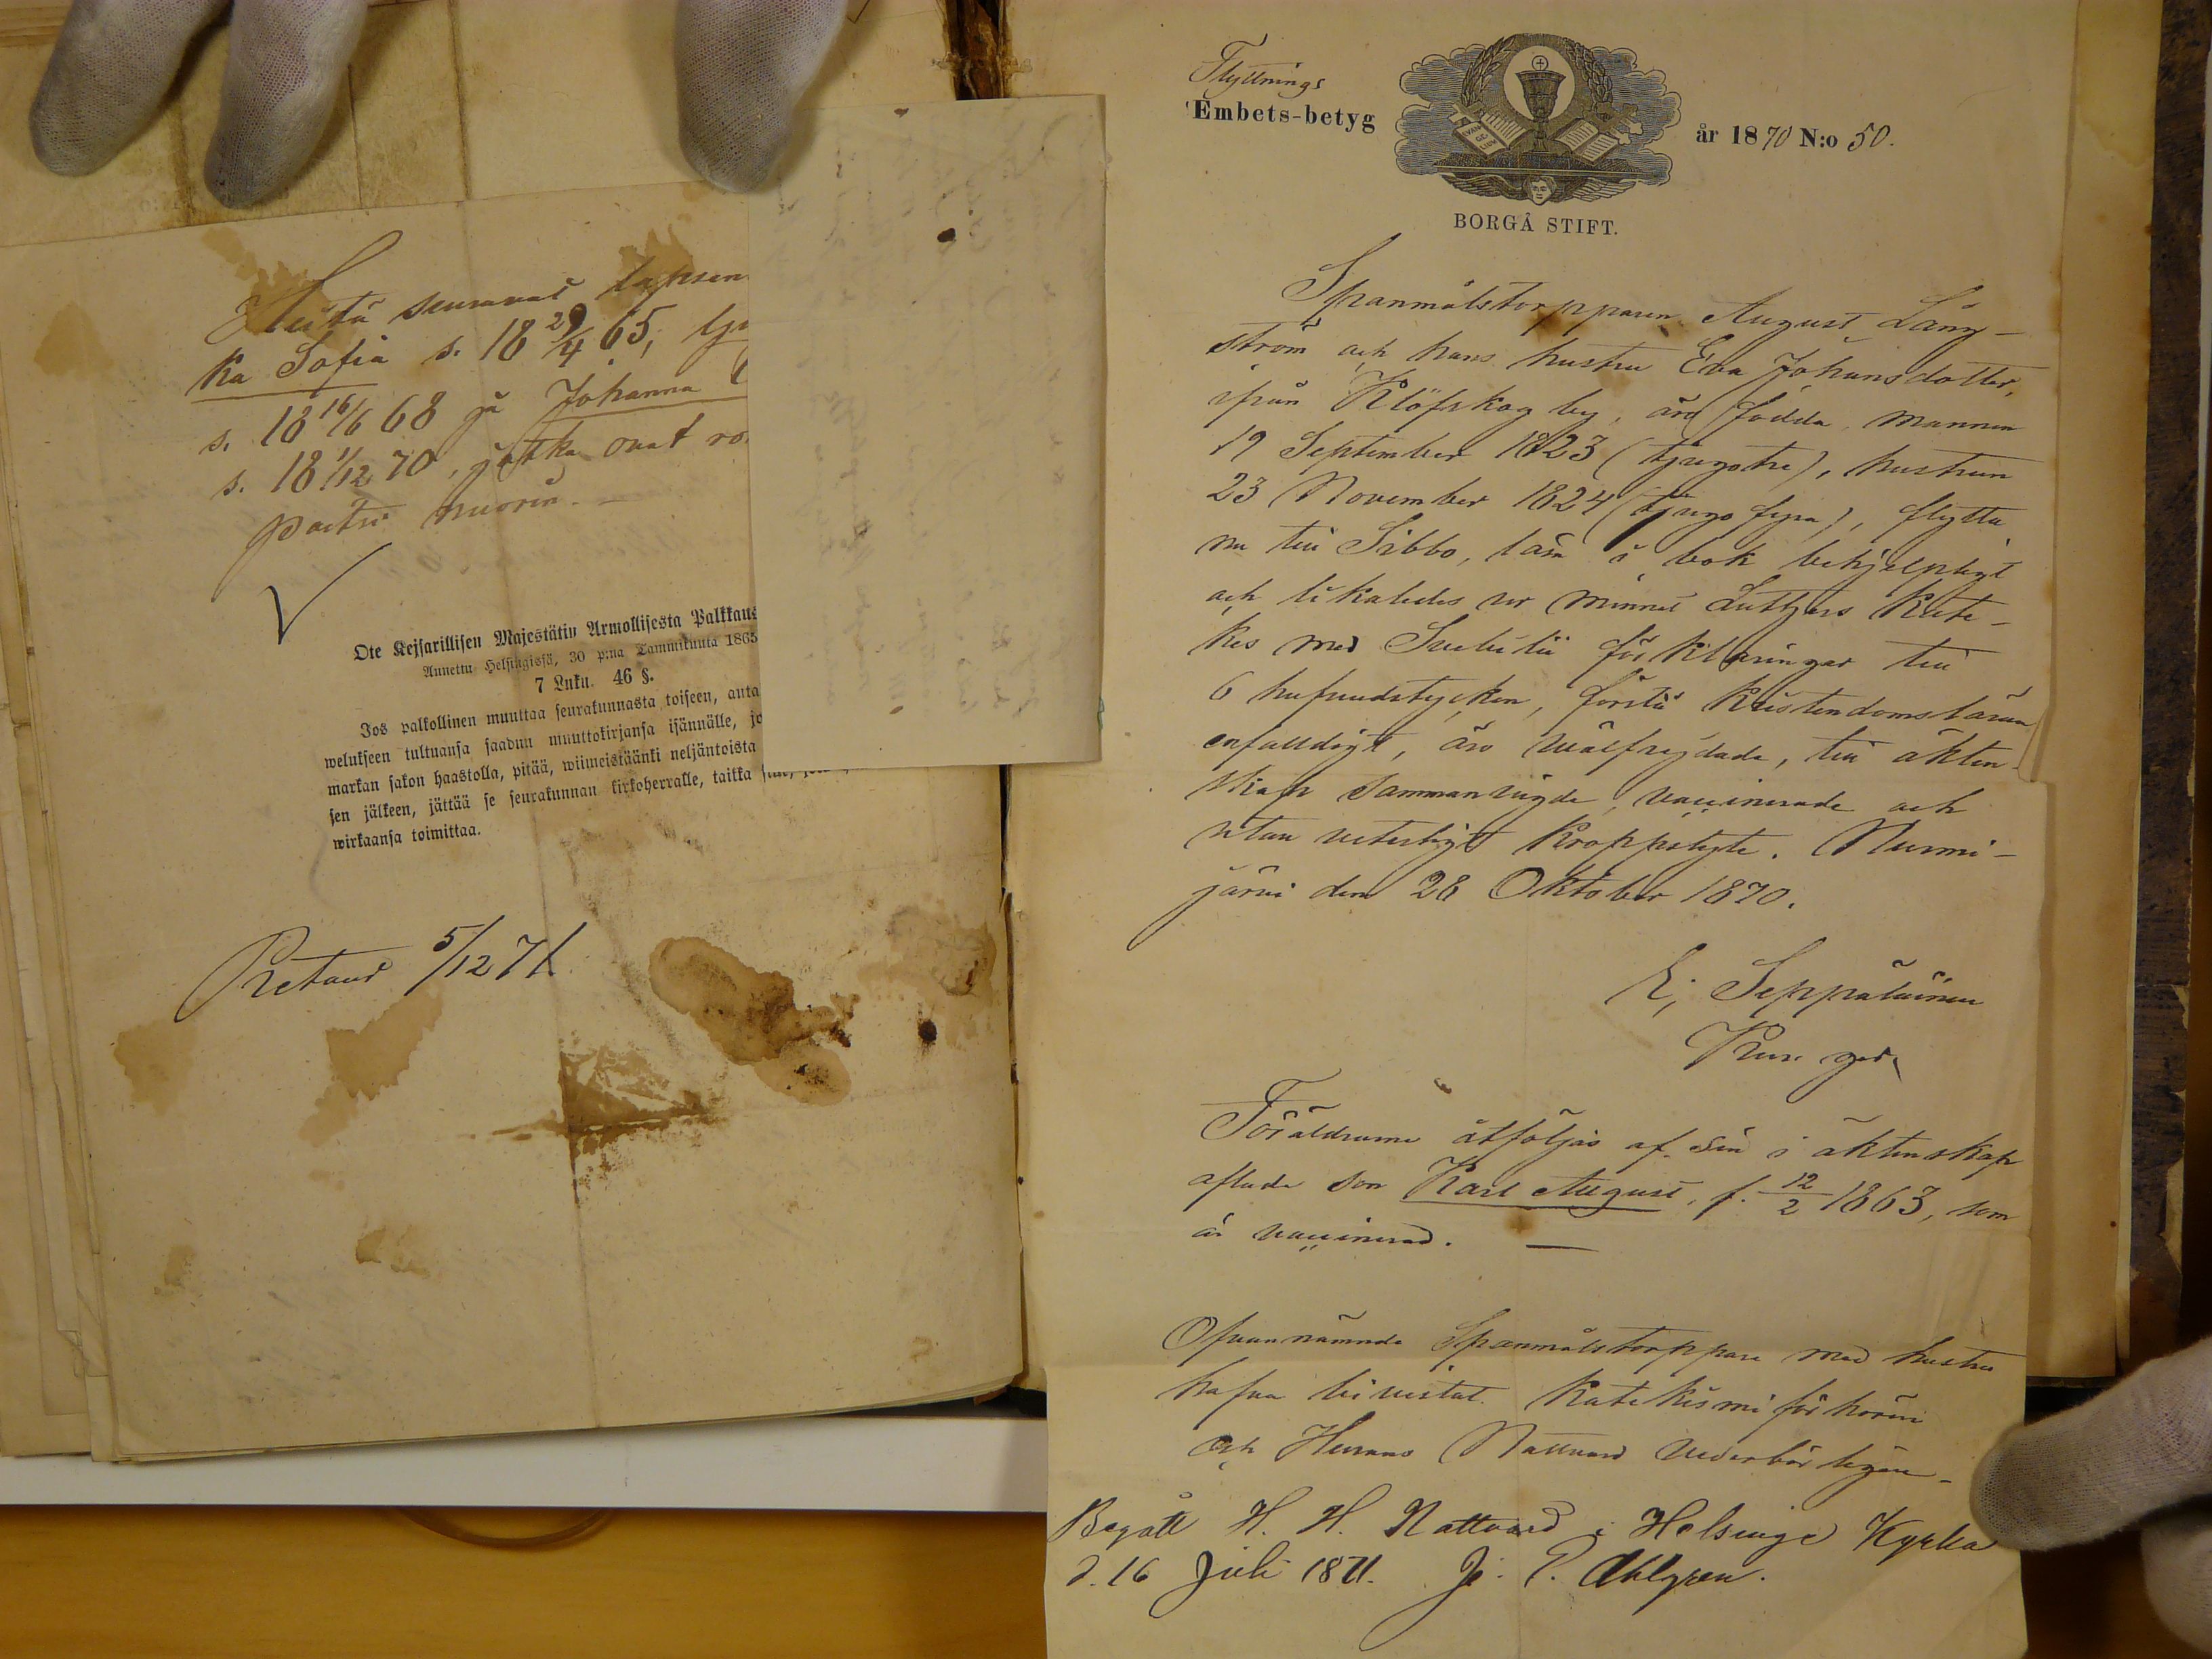 Heitä seuraavat lapsen
ka Sofia s. 18 29/4 65,
s. 18 16/6 68 ja Johanna
s. 18 1/12 70, jotka ovat ro
paitsi nuorin. —
Ote Keisarillisen Majestätin Armollisesta Palkkaus
Annettu Helsingissä, 30 p:nä Tammikuuta 1865
7 Luku. 46 §.
Jos palkollinen muuttaa seurakunnasta toiseen, anta
welukseen tultuansa saadun muuttokirjansa isännälle, jo
markan sakon haastolla, pitää, wiimeistäänki neljäntoista
sen jälkeen, jättää se seurakunnan kirkoherralle, taikka
wirkaansa toimittaa.
Retour 5/12 71
Flyttnings
Embets-betyg
år 1870 N:o 50.
EVAN
GE-
LIUM
BORGÅ STIFT.
Spanmålstorpparen August Lång-
ström och hans hustru Eva Johansdotter,
ifrån Klöfskog by, äro födda, mannen
19 September 1823 (tjugotre), hustrun
23 November 1824 (tjugo fyra), flytta
nu till Sibbo, läsa i bok behjelpligt
och likaledes ur minnet Luthers Kate-
kes med Svebilii förklaringar till
6 hufvudstycken, förstå kristendomsläran
enfaldigt, äro välfrejdade, till äkten-
skap sammanvigde, vaccinerade och
utan veterligt kroppslyte. Nurmi-
järvi den 28 Oktober 1870.
Seppäläinen
Föräldrarne åtföljas af sin i äktenskap
aflade son Karl August, f. 12/2 1863, som
är vaccinerad. —
Ofvannämnde Spanmålstorppare med hustru
hafva bevistat Katekismi förhören
och Herrans Nattvard vederbörligen.
Begått H. H. Nattvard i Helsinge Kyrka
d. 16 Juli 1871. J. E. Ahlgren.